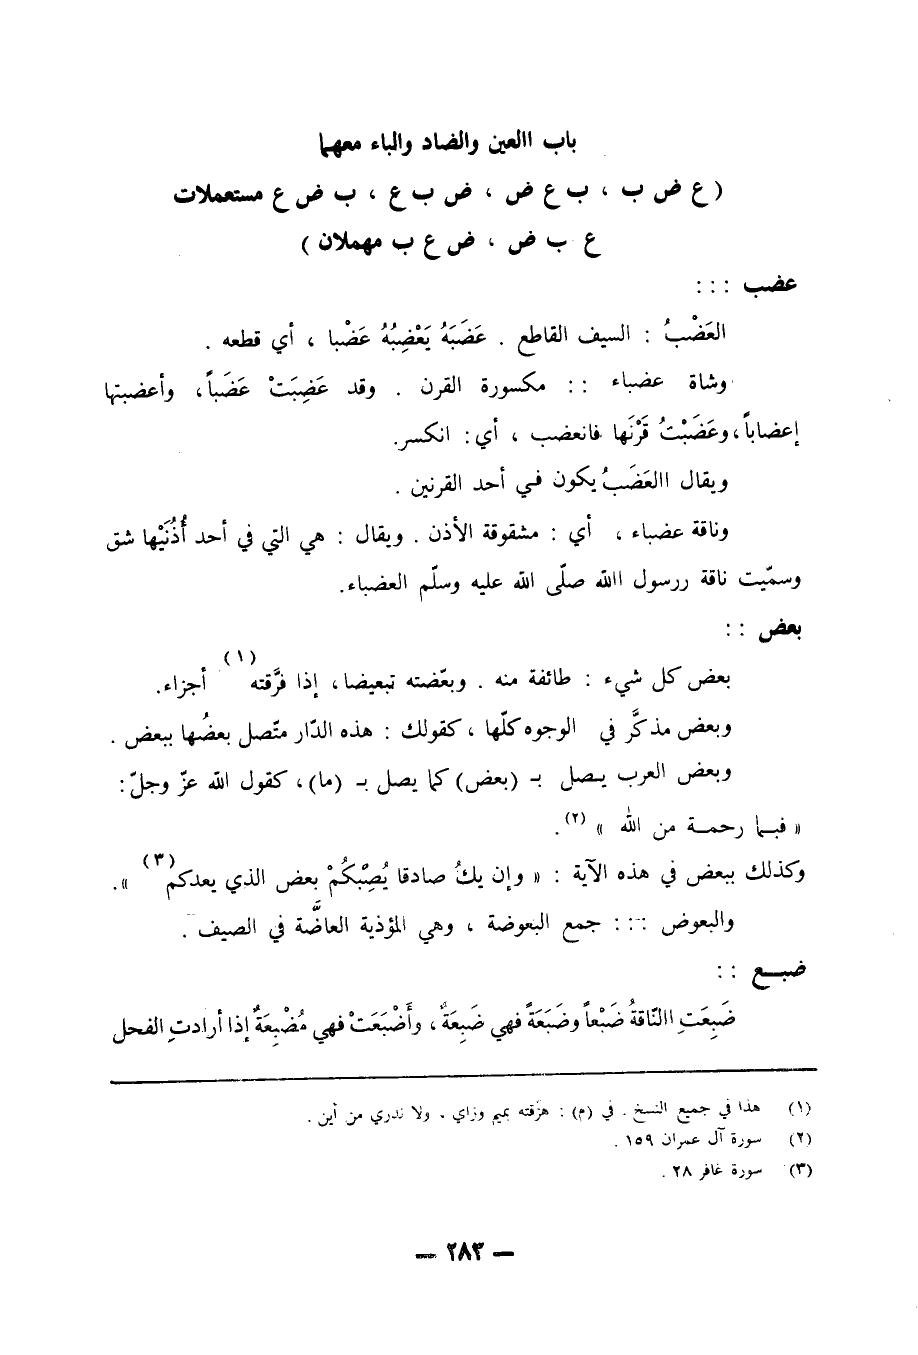 باب العين والضاد والباء معهما
( ع ض ب ، ب ع ض ، ض ب ع ، ب ض ع مستعملات
ع ب ض ، ض ع ب مهملان )
عضب :
العَضْبُ : السيف القاطع . عَضَبَهُ يَعْضِبُهُ عَضْبا ، أي قطعه .
وشاة عضباء : مكسورة القرن . وقد عَضِبَتْ عَضَباً، وأعضبتها
إعضاباً، وعَضَبْتُ قَرْنَها فانعضب ، أي: انكسر.
ويقال العَضَبُ يكون في أحد القرنين .
وناقة عضباء ، أي : مشقوقة الأذن . ويقال : هي التي في أحد أُذُنَيْها شق
وسمّيت ناقة رسول الله صلّى الله عليه وسلّم العضباء.
بعض :
بعض كل شيء : طائفة منه . وبعّضته تبعيضا، إذا فرَّقته (١) أجزاء.
وبعض مذكَّر في الوجوه كلّها ، كقولك : هذه الدّار متّصل بعضُها ببعض .
وبعض العرب يصل بـ (بعض) كما يصل بـ (ما)، كقول الله عزّ وجلّ :
« فبما رحمة من الله » (٢).
وكذلك ببعض في هذه الآية : « وإن يكُ صادقا يُصِبْكُمْ بعض الذي يعدكم (٣) ».
والبعوض : جمع البعوضة ، وهي المؤذية العاضَّة في الصيف .
ضبع :
ضَبِعَتِ النّاقةُ ضَبْعاً وضَبَعَةً فهي ضَبِعَةٌ، وأَضْبَعَتْ فهي مُضْبِعَةٌ إذا أرادتِ الفحل
(١) هذا في جميع النسخ . في (م) : هزّقته بميم وزاي ، ولا ندري من أين .
(٢) سورة آل عمران ١٥٩ .
(٣) سورة غافر ٢٨ .
— ٢٨٣ —